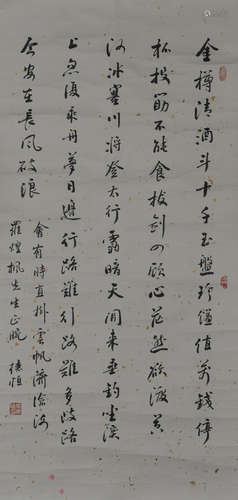 金樽清酒斗十千玉盤珍饈值萬錢停
杯投筯不能食拔劍四顧心茫然欲渡黃
河冰塞川將登太行雪暗天閒來垂釣坐溪
上忽復乘舟夢日邊行路難行路難多歧路
今安在長風破浪
會有時直掛雲帆濟滄海
羅煌楓先生正腕 德恒